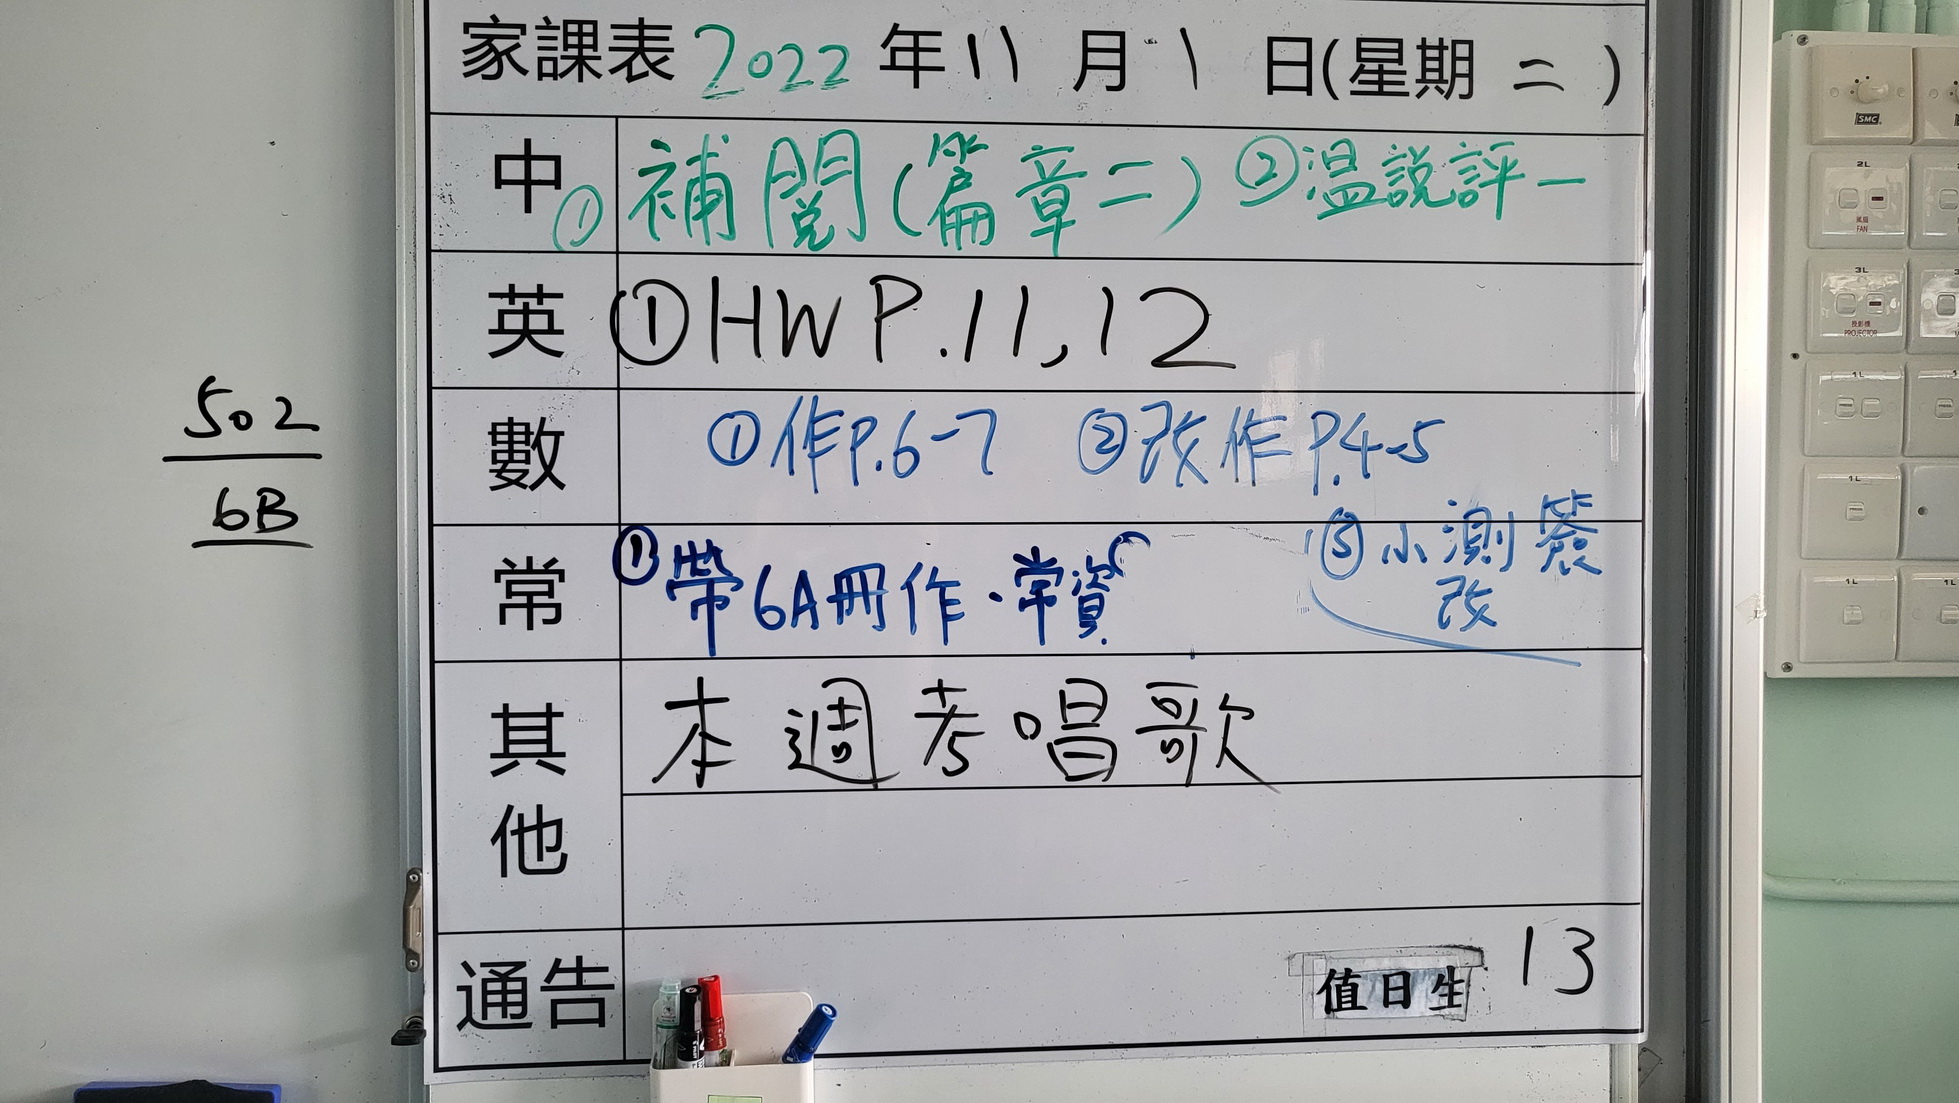 家課表 2022 年 11 月 1 日(星期 二 )
中 ① 補閱(篇章二) ②温說評一
英 ①HW P.11,12
數 ①作P.6-7 ②改作P.4-5
③小測簽
改
常 ①帶6A冊作·常資
其他 本週考唱歌
通告
值日生 13
502
6B
SMC
2L
風扇
FAN
3L
投影機
PROJECTOR
1L
1L
1L
1L